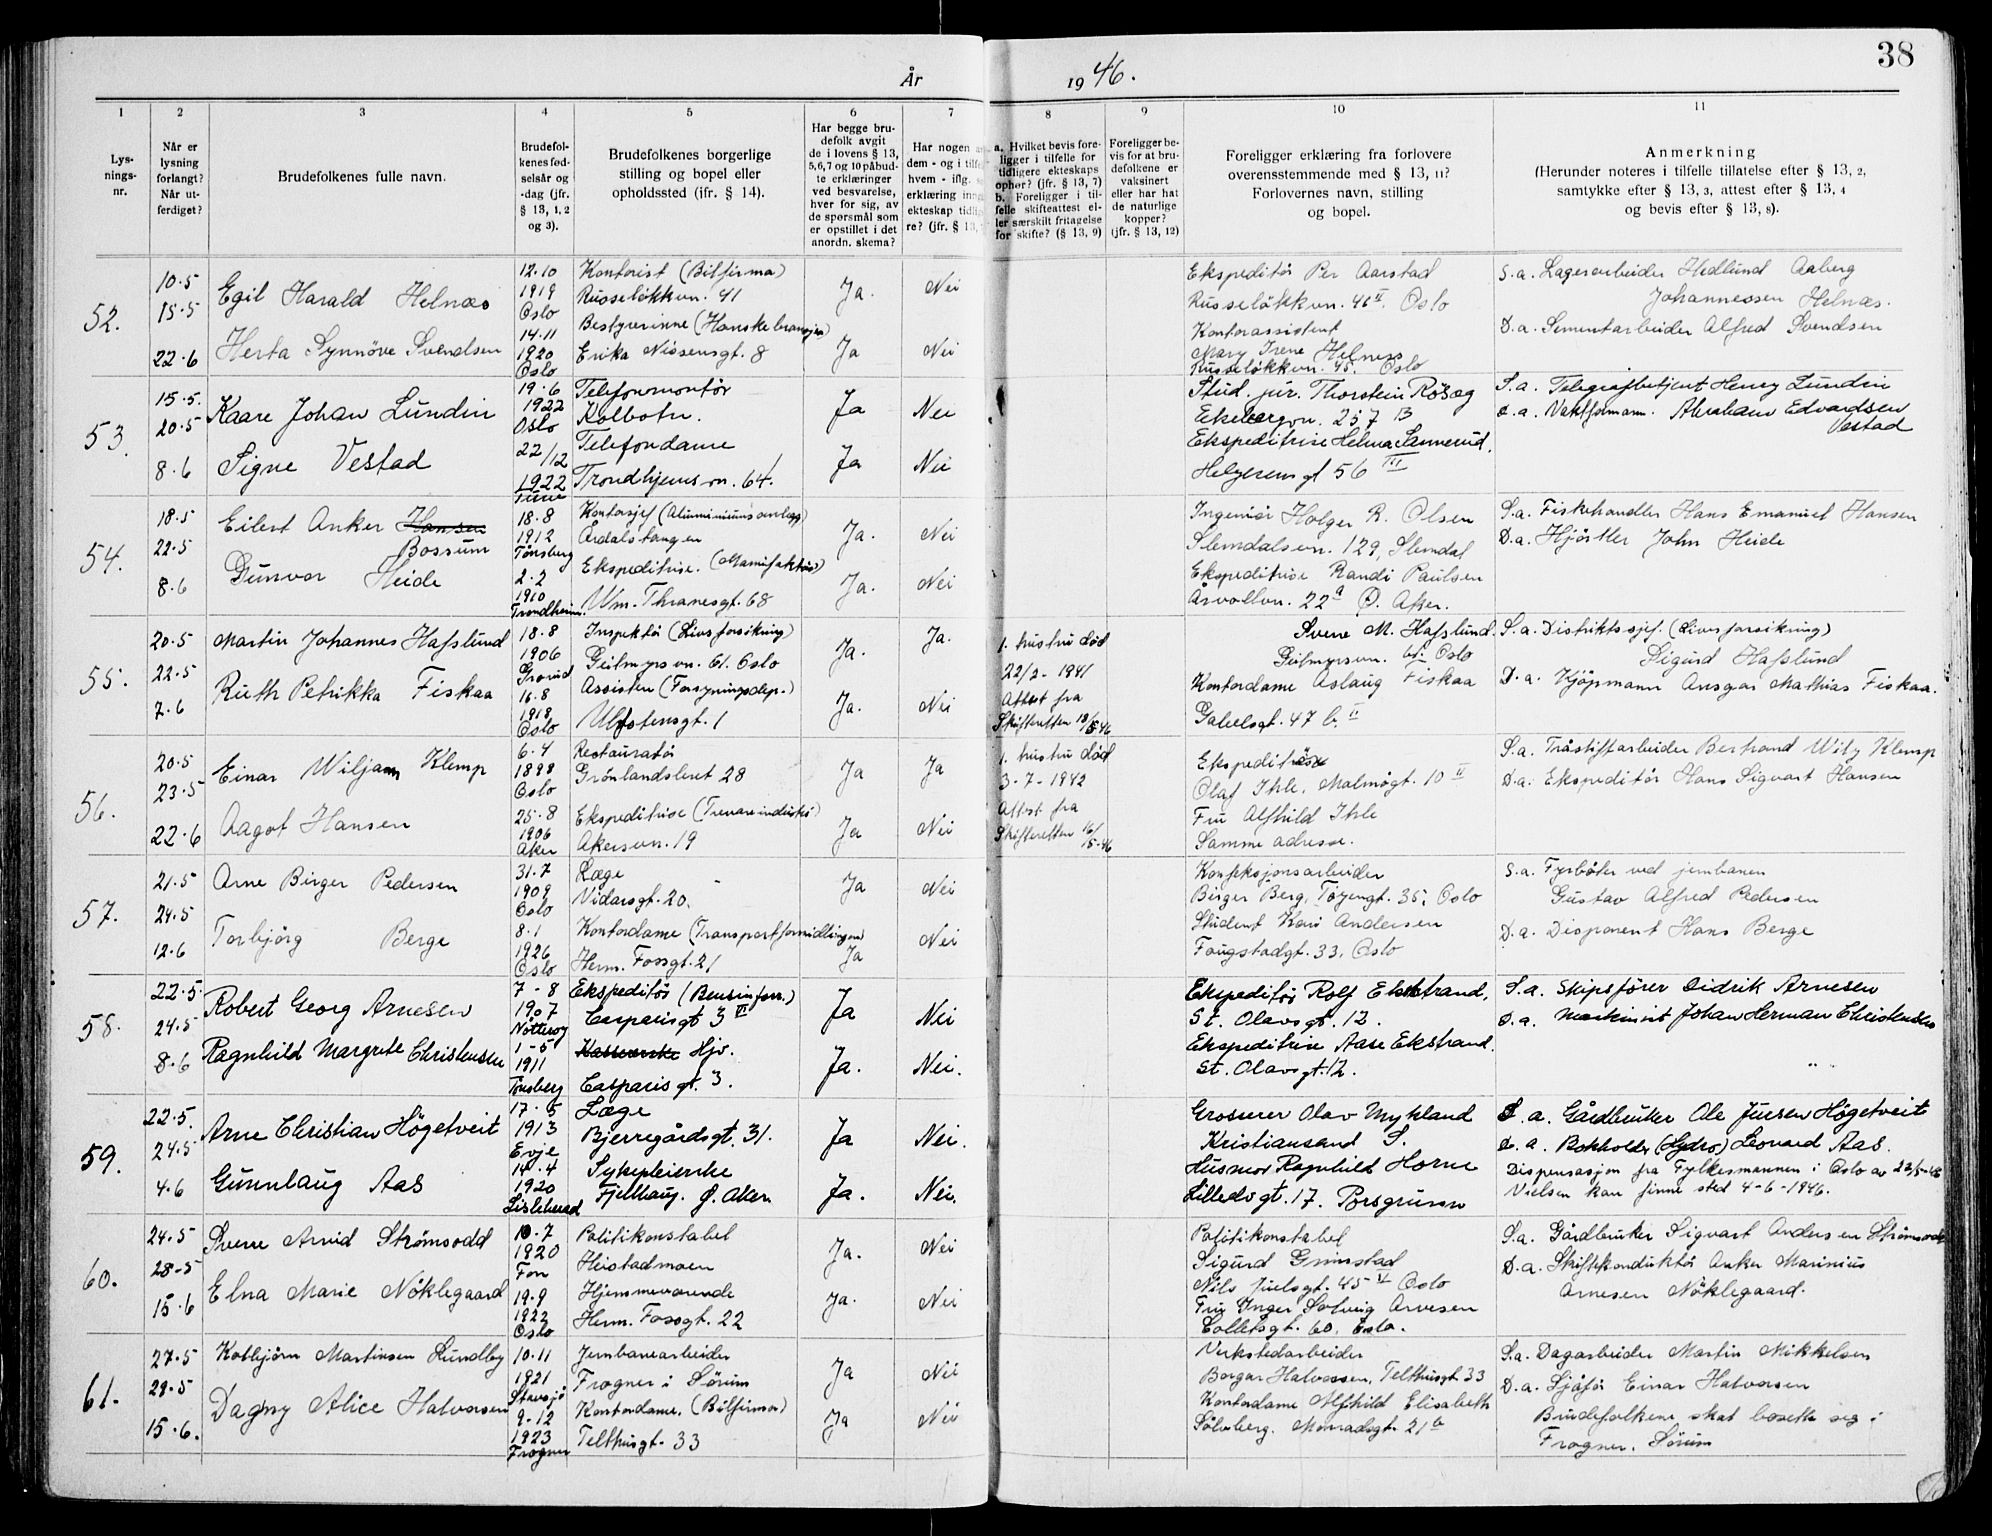 38
År 1946.
1 2 3 4 5 6 7 8 9 10 11
Lysningsnr.
Når er lysning forlangt? Når utferdiget?
Brudefolkenes fulle navn.
Brudefolkenes fødselsår og -dag (jfr. § 13, 1, 2 og 3).
Brudefolkenes borgerlige stilling og bopel eller opholdssted (jfr. § 14).
Har begge brudefolk avgit de i lovens § 13, 5,6,7 og 10 påbudte erklæringer ved besvarelse, hver for sig, av de spørsmål som er opstillet i det anordn. skema?
Har nogen
dem - og i
hvem - iflg.
erklæring
ekteskap
re? (jfr. § 13,
a. Hvilket bevis foreligger i tilfelle for tidligere ekteskaps ophør? (jfr. § 13, 7)
b. Foreligger i tilfelle skifteattest eller særskilt fritagelse for skifte? (§ 13, 9)
Foreligger bevis for at brudefolkene er vaksinert eller har hat de naturlige kopper? (jfr. § 13, 12)
Foreligger erklæring fra forlovere overensstemmende med § 13, 11? Forlovernes navn, stilling og bopel.
Anmerkning
(Herunder noteres i tilfelle tillatelse efter § 13, 2, samtykke efter § 13, 3, attest efter § 13, 4 og bevis efter § 13, 8).
52.
10.5
15.5
22.6
Egil Harald Helnæs
Herta Synnöve Svendsen
12.10
1919
Oslo
14.11
1920
Oslo
Kontorist (Bilfirma)
Russeløkkvn. 41
Bestyrerinne (Hanskebransjen)
Erika Nissensgt. 8
Ja. Nei
Ja Nei
Ekspeditör Per Aarstad
Russeløkkvn. 46 II. Oslo
Kontorassistent
Mary Irene Helness
Russeløkkvn. 45. Oslo
S.a. Lagerarbeider Hedlund Aaberg
Johannessen Helnæs.
D.a. Sementarbeider Alfred Svendsen
53.
15.5.
20.5
8.6
Kaare Johan Lundin
Signe Vestad
19.6
1922
Oslo
22/12
1922
Tune
Telefonmontör
Kolbotn.
Telefondame
Trondhjemsvn. 64.
Ja Nei
Ja Nei
Stud. jur. Thorstein Röbæg
Ekebergvn. 257 B
Ekspeditrise Helma Sannerud.
Helgesensgt 56 III
S.a. Telegrafbetjent Henry Lundin
D.a. Vaktformann. Abraham Edvardsen
Vestad
54.
18.5
22.5
8.6
Eilert Anker Hansen
Bossum
Gunvor Heide
18.8
1912
Tönsberg
2.2
1910
Trondheim.
Kontorsjef (Aluminiumsanlegg)
Årdalstangen
Ekspeditrise. (Manifaktur)
Wm. Thranesgt. 68
Ja. Nei
Ja. Nei
Ingeniör Holger R. Olsen
Slemdalsvn. 129, Slemdal
Ekspeditrise Randi Paulsen
Årvollvn. 22a Ö. Aker.
S.a. Fiskehandler Hans Emanuel Hansen
D.a. Hjörtler John Heide
55.
20.5
22.5
7.6
Martin Johannes Hafslund
Ruth Petrikka Fiskaa
18.8
1906
Grorud
16.8
1918
Oslo
Inspektör (Livsforsikring)
Geitmyrsvn. 61. Oslo
Assistent (Forsyningsdep.)
Ulfstensgt. 1
Ja. Ja.
Ja. Nei
1. hustru död
22/2 - 1941
Attest fra
Skifteretten 18/5-46
Svere M. Hafslund.
Geitmyrsvn. 61 Oslo
Kontordame Aslaug Fiskaa
Gabelsgt. 47 b. II
S.a. Distriktssjef. (Livsforsikring)
Sigurd Hafslund
D.a. Kjöpmann Ansgar Mathias Fiskaa.
56.
20.5
23.5
22.6
Einar Wiljam Klemp
Aagot Hansen
6.4
1898
Oslo
25.8
1906
Aker
Restauratör
Grönlandsleret 28
Ekspeditrise (Trevareindustri)
Akersvn. 19
Ja Ja
Ja Nei
1. hustru död
3-7-1942
Attest fra
Skifteretten 16/5-46
Ekspeditör
Olaf Ihle, Malmögt. 10 II
Fru Alfhild Ihle
Samme adresse.
S.a. Tråstiftarbeider Bertrand Wily Klemp
D.a. Ekspeditör Hans Sigvart Hansen
57.
21.5
24.5
12.6
Arne Birger Pedersen
Torbjörg Berge
31.7
1909
Oslo
8.1
1926
Oslo
Læge
Vidarsgt. 20.
Kontordame (Transportformidlingen)
Herm. Fossgt. 21
Ja Nei
Ja Nei
Konfeksjonsarbeider
Birger Berg, Töyengt. 35, Oslo
Student Kari Andersen
Fougstadgt. 33, Oslo
S.a. Fyrböter ved jernbanen
Gustav Alfred Pedersen
D.a. Disponent Hans Berge
58.
22.5.
24.5
8.6
Robert Georg Arnesen
Ragnhild Margrete Christensen
7-8
1907
Nötteröy
1-5
1911
Tönsberg
Ekspeditör (Bensinforr.)
Casparisgt 3 VI
Hjv.
Casparisgt. 3.
Ja Nei
Ja. Nei.
Ekspeditör Rolf Ekstrand,
St. Olavsgt. 12.
Ekspeditrise Aase Ekstrand.
St. Olavsgt. 12.
S.a. Skipsförer Didrik Arnesen
D.a. Maskinist Johan Herman Christensen
59.
22.5.
24.5
4.6
Arne Christian Högetveit
Gunnlaug Aas
17.5
1913
Evje
14.4
1920
Lisleherad
Læge
Bjerregårdsgt. 31.
Sykepleierske
Fjellhaug. Ö. Aker
Ja Nei.
Ja. Nei.
Grosserer Olav Mykland
Kristiansand S.
Husmor Ragnhild Horne
Lilledsgt. 17. Porsgrunn
S.a. Gårdbruker Ole Juesen Högetveit
D.a. Bokholder (Hydro) Leonard Aas.
Dispensasjon fra Fylkesmannen i Oslo av 22/5-46
Vielsen kan finne sted 4-6-1946.
60.
24.5
28-5
15.6
Svere Arvid Strömsodd
Elna Marie Nöklegaard
10.7
1920
Fon
19.9
1922
Oslo
Politikonstabel
Heistadmoen
Hjemmeværende
Herm. Fossgt. 22
Ja. Nei
Ja. Nei
Politikonstabel
Sigurd Grimstad
Nils Juelsgt. 45 V Oslo
Fru Inger Solveig Arvesen
Colletsgt. 60. Oslo.
S.a. Gårdbruker Sigvart Andersen Strömsodd
D.a. Skiftekonduktör Anker Marinius
Arnesen Nöklegaard.
61.
27.5
29.5
15.6.
Kolbjörn Martinsen Lundby
Dagny Alice Halvorsen
10.11
1921
Stavsjö
9-12
1923
Frogner
Jernbanearbeider
Frogner i Sörum
Kontordame. (Bilfirma)
Telthusgt. 33
Ja Nei
Ja Nei
Verkstedarbeider
Borgar Halvorsen, Telthusgt 33
Kontordame Alfhild Elisabeth
Sölvberg. Monradsgt. 21b
S.a. Dagarbeider Martin Mikkelsen
D.a. Sjåför Einar Halvorsen
Brudefolkene skal bosette seg i
Frogner. Sörum